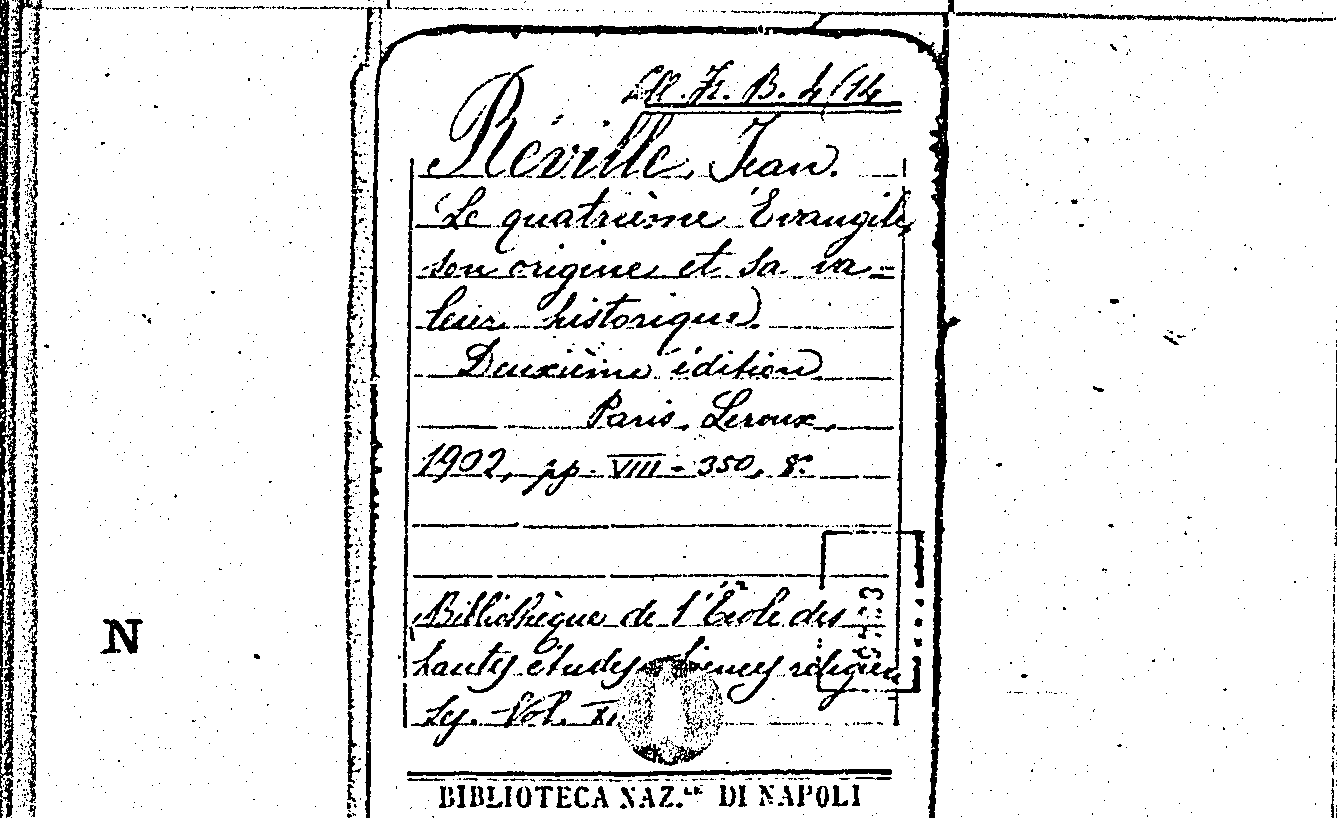 Fr. B. 4/14
Réville, Jean.
Le quatrième Évangile,
son origine et sa va=
leur historique.
Deuxième édition
Paris, Leroux,
1902, pp. VIII-350, 8.°
Bibliothèque de l'École des
hautes études religieu
ses. Vol.
N
BIBLIOTECA NAZ.LE DI NAPOLI